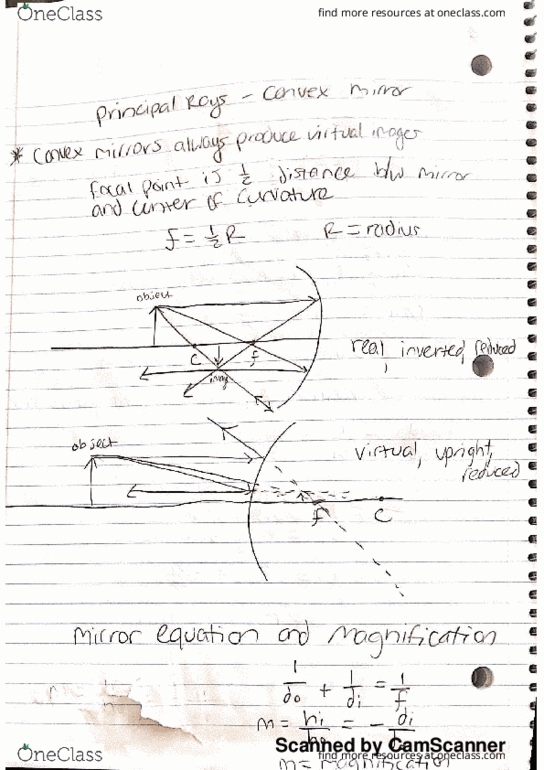 OneClass
find more resources at oneclass.com
Principal Rays - Convex mirror
* Convex mirrors always produce virtual images
focal point is 1/2 distance b/w mirror
and center of curvature
f = 1/2 R    R = radius
object
C
f
image
real, inverted, reduced
object
virtual, upright,
reduced
f
C
Mirror equation and Magnification
1/do + 1/di = 1/f
m = hi/ho = - di
Scanned by CamScanner
OneClass
find more resources at oneclass.com
m = magnification